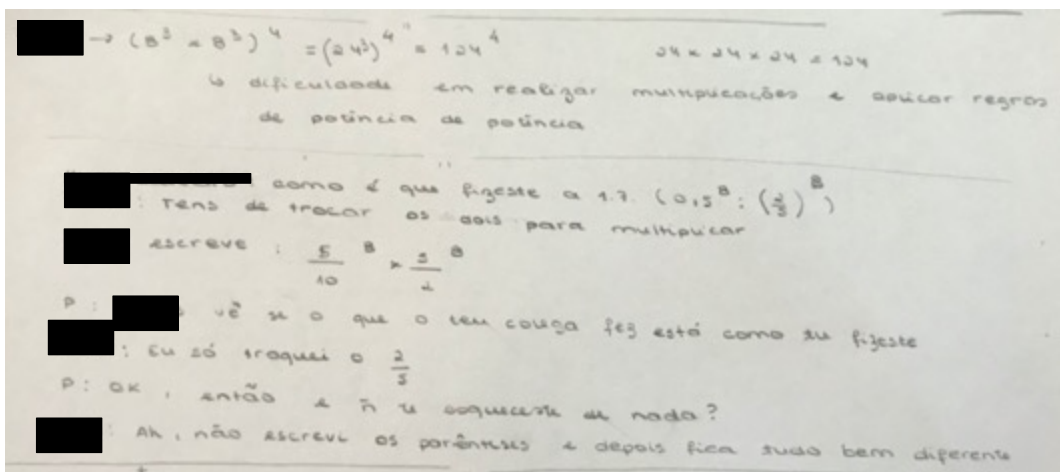 → (8³ × 8³)⁴ = (24³)⁴ = 124⁴ 24 × 24 × 24 = 124
↳ dificuldade em realizar multiplicações e aplicar regras
de potência de potência
como é que fizeste a 1.7. (0,5⁸ : (2/5)⁸)
: Tens de trocar os dois para multiplicar
escreve : 5/10 ⁸ × 5/2 ⁸
P : vê se o que o teu colega fez está como tu fizeste
: Eu só troquei o 2/5
P : OK, então e ñ te esqueceste de nada?
: Ah, não escrevi os parênteses e depois fica tudo bem diferente